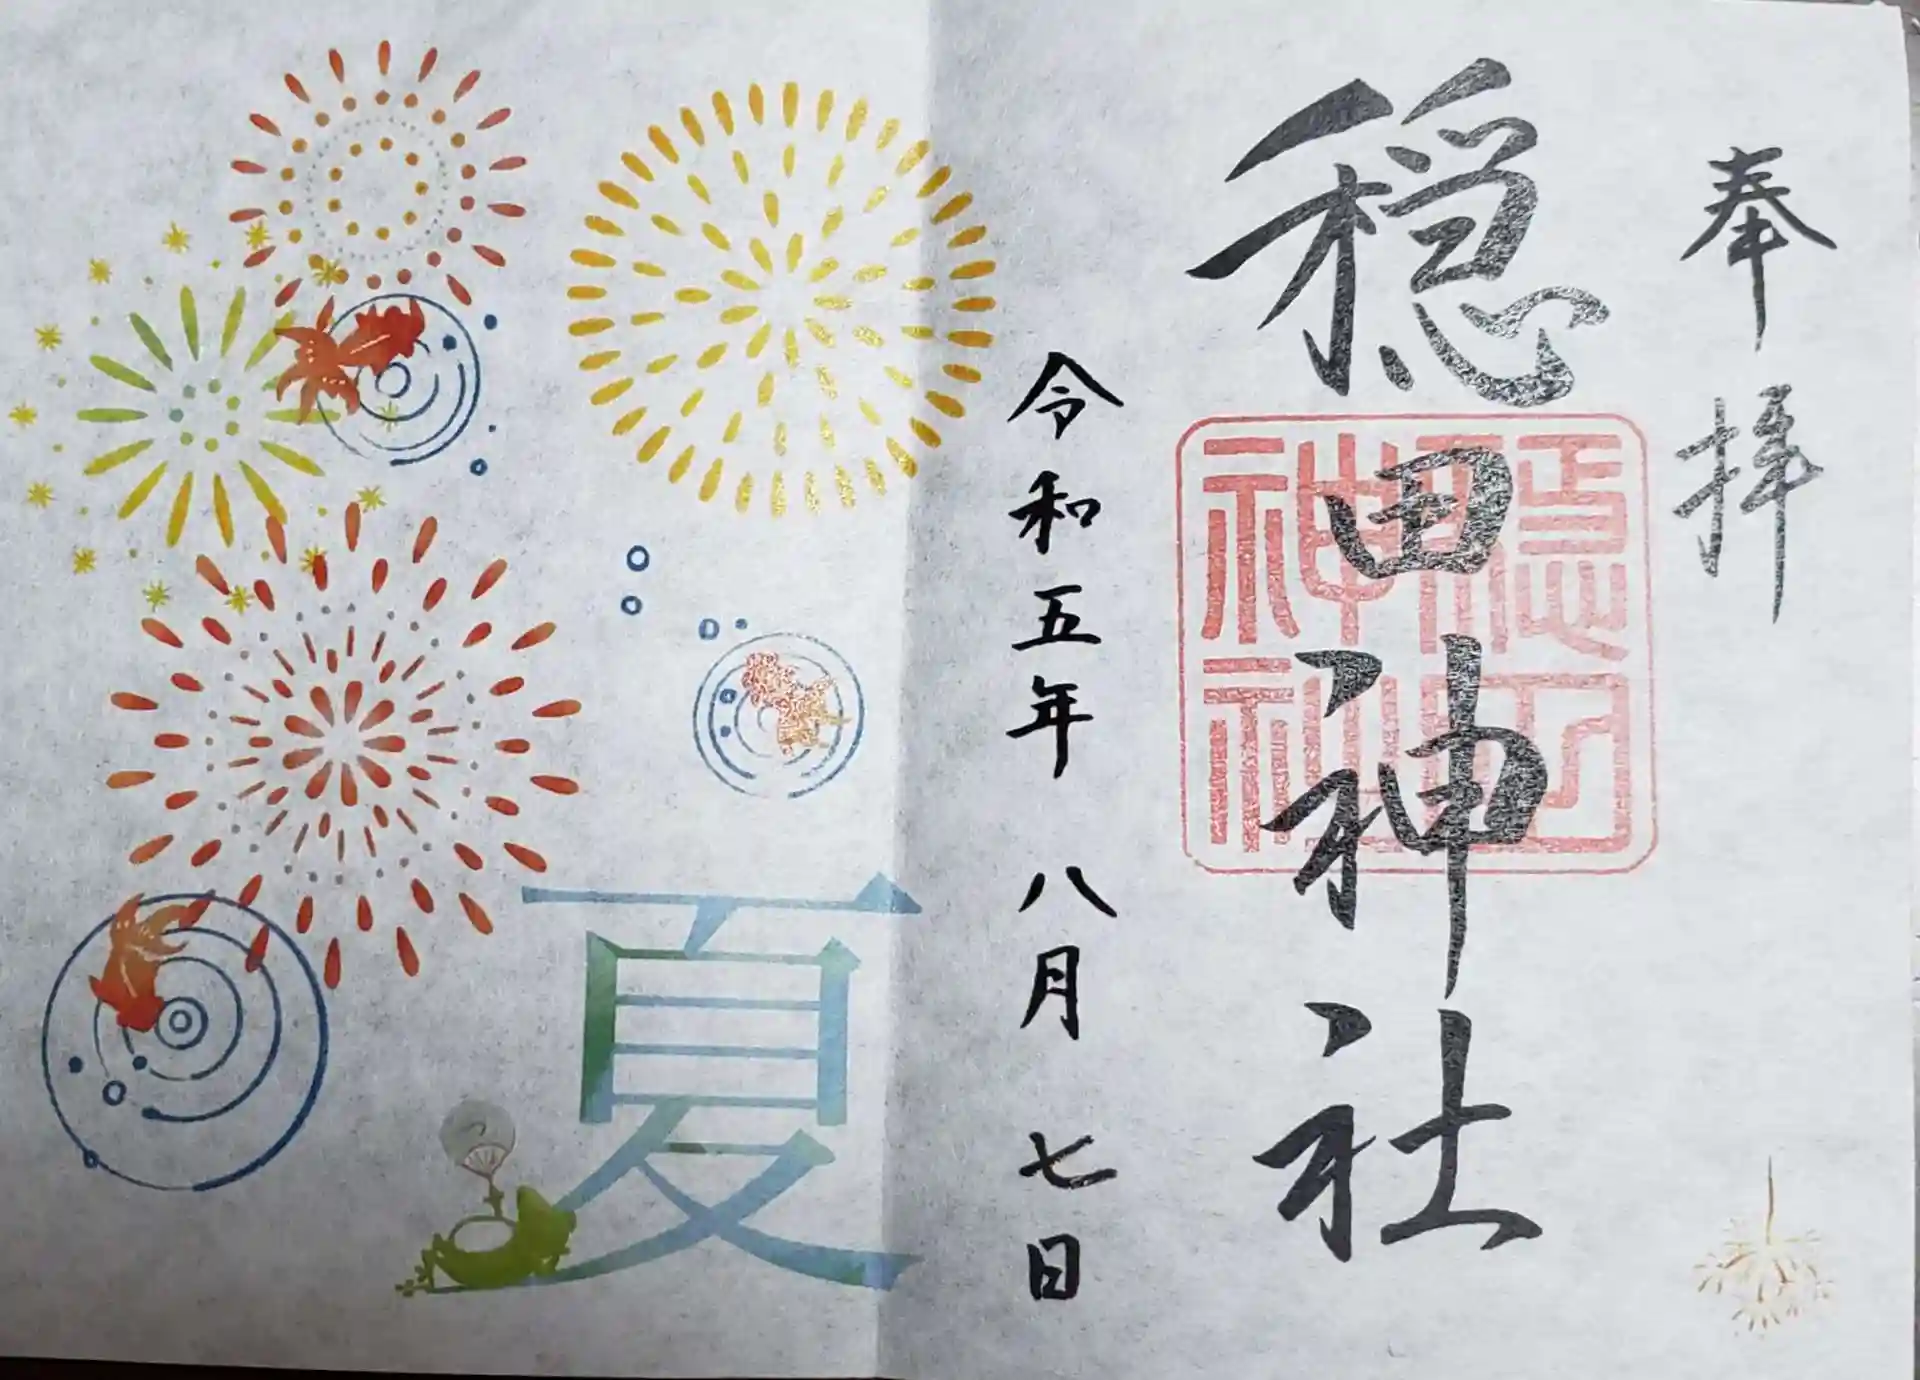 奉拝
穏田神社
穏田神社
令和五年 八月 七日
夏